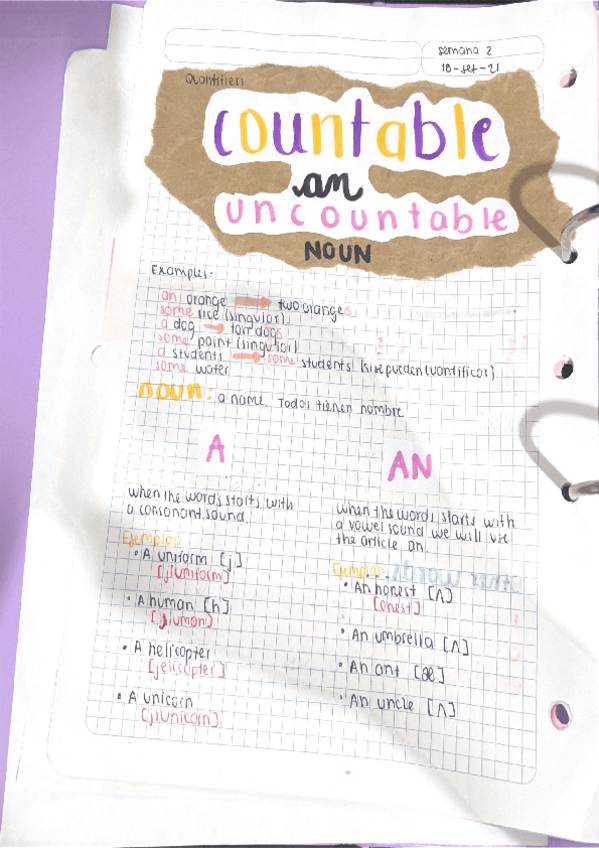 semana 2
18-set-21
Quantifiers
countable
an
uncountable
NOUN
Examples:
an orange → two oranges
some rice (singular).
a dog → torr dogs
some paint (singular)
a students → some students (si se pueden cuantificar)
some water
noun: a name. Todos tienen nombre
A
when the words starts with
a consonant sound.
Ejemplos:
• A uniform [j]
[jluniform]
• A human [h]
[jluman]
• A helicopter
[jelicopter]
• A unicorn
[jlunicorn]
AN
when the words starts with
a vowel sound we will use
the article an.
Ejemplos:
• An honest [Λ]
[onest]
• An umbrella [Λ]
• An ant [æ]
• An uncle [Λ]